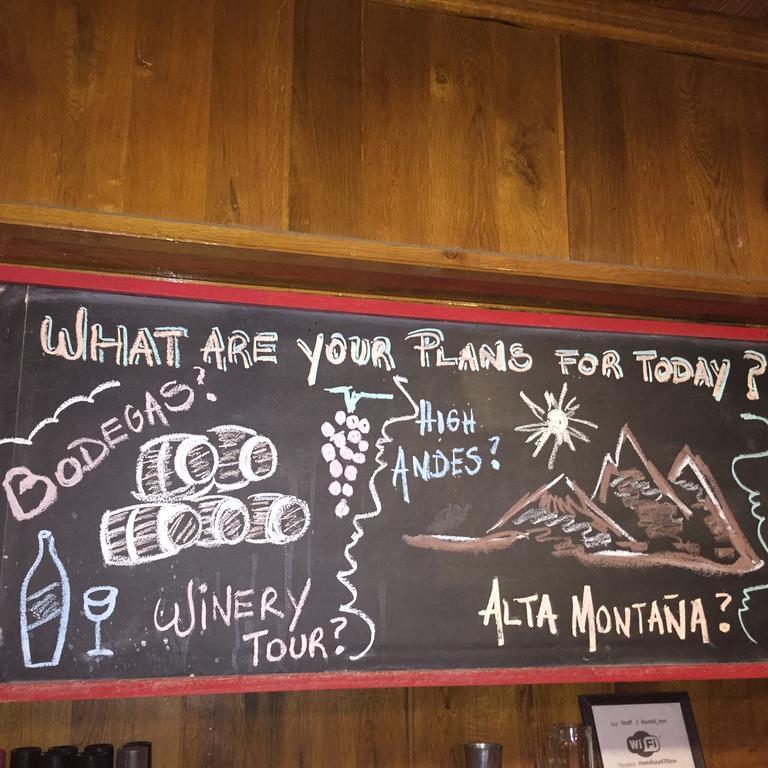 WHAT ARE YOUR PLANS FOR TODAY?
BODEGAS?
HIGH
ANDES?
WINERY
TOUR?
ALTA MONTAÑA?
Staff / Hostel_Inn
WiFi